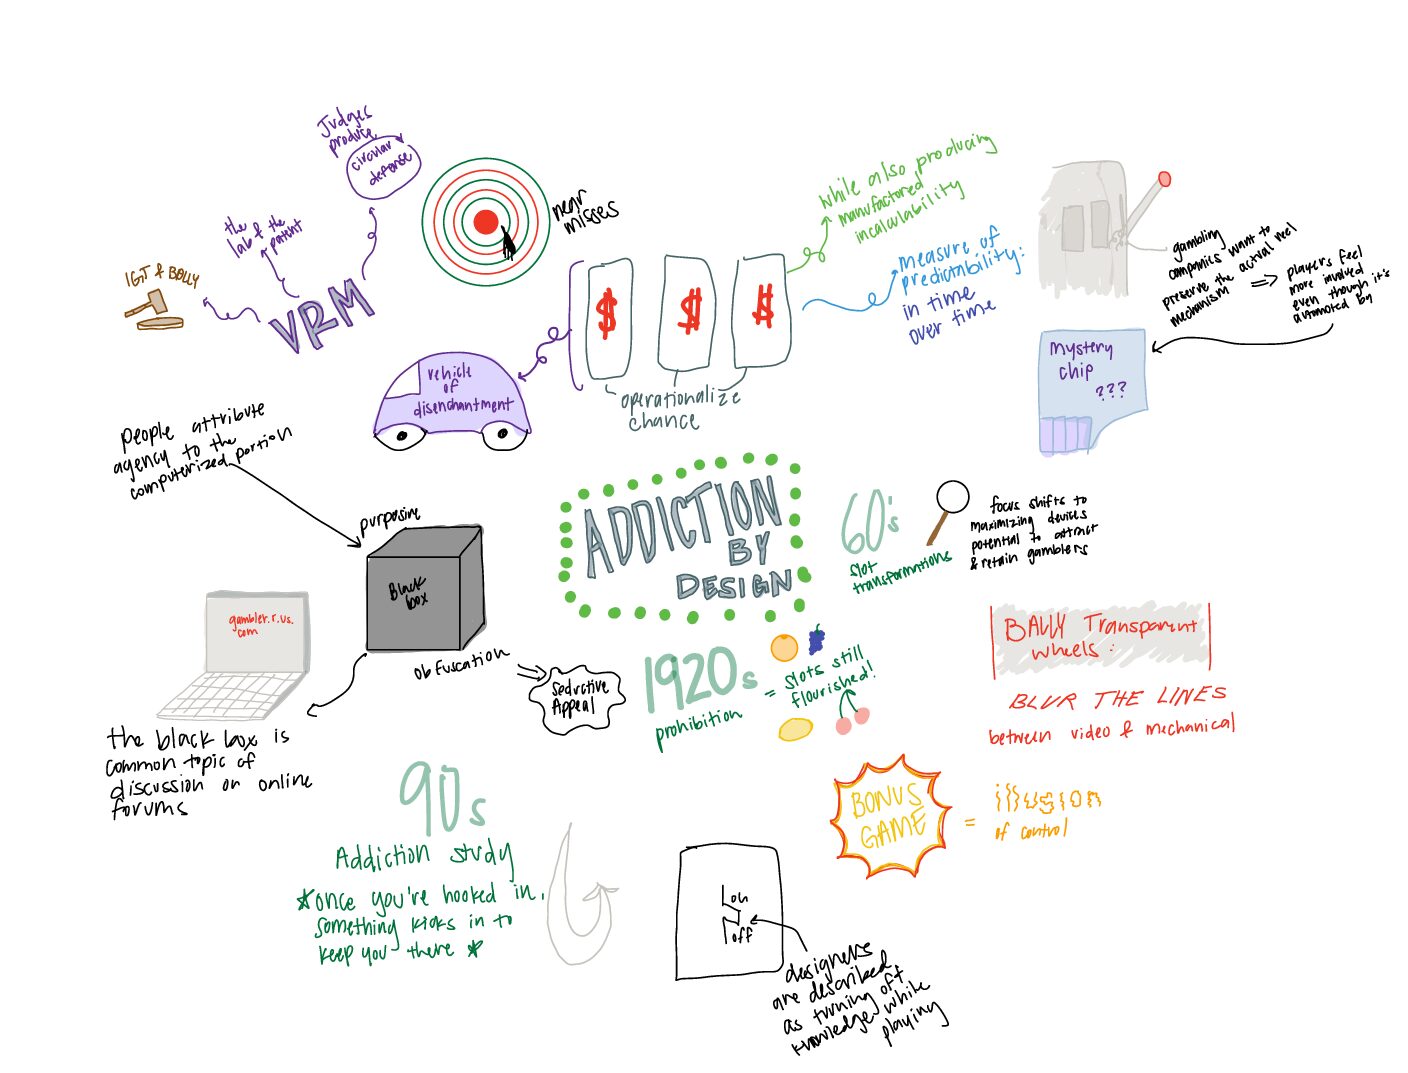 Judges
produce
circular
defense
the
lab & the
patent
IGT & BALLY
VRM
near
misses
while also producing
manufactored
incalculability
measure of
predictability:
in time
over time
gambling
companies want to
preserve the actual reel
mechanism
players feel
more involved
even though it's
automated by
mystery
chip
???
$ $ $
operationalize
chance
vehicle
of
disenchantment
people attribute
agency to the
computerized portion
purposive
Black
box
obfuscation
Seductive
Appeal
gambler.r.us.
com
the black box is
common topic of
discussion on online
forums
ADDICTION
BY
DESIGN
60's
slot
transformations
focus shifts to
maximizing devices
potential to attract
& retain gamblers
1920s
prohibition
= slots still
flourished!
BALLY Transparent
wheels:
BLUR THE LINES
between video & mechanical
BONUS
GAME
= illusion
of control
90s
Addiction study
*once you're hooked in,
something kicks in to
keep you there *
on
off
designers
are described
as turning off
knowledge while
playing